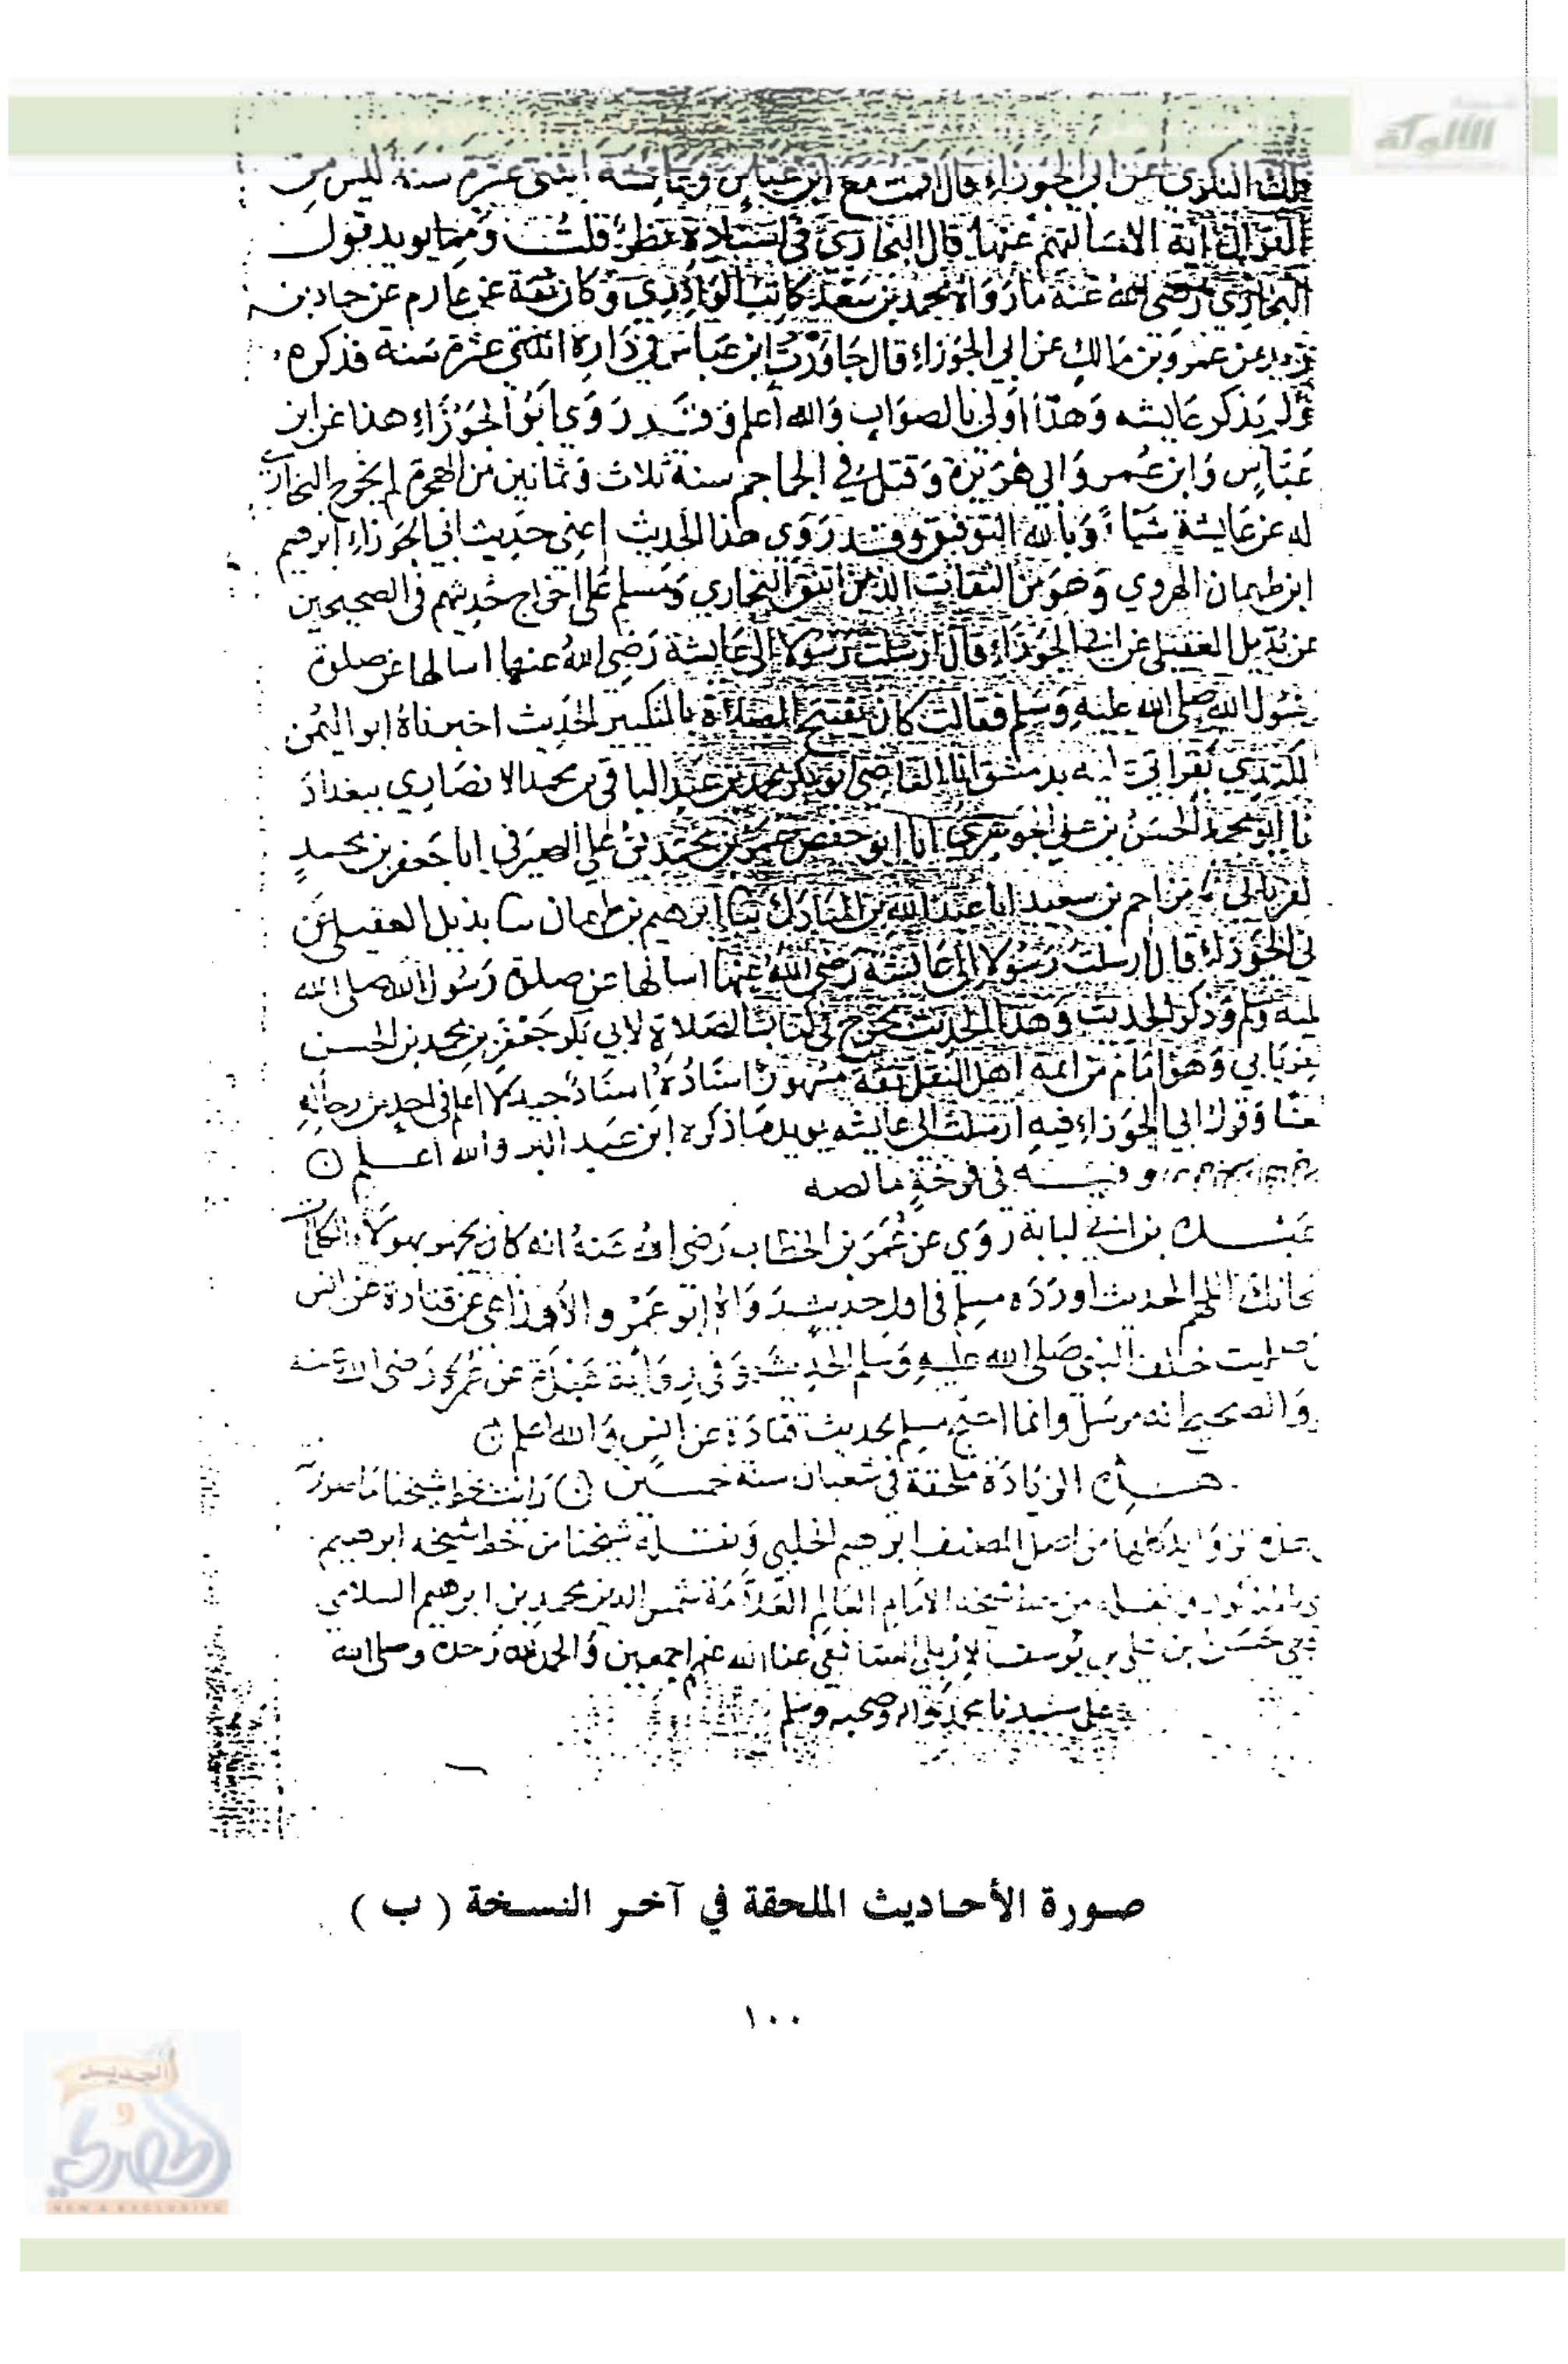 شبكة
الألوكة
مالك النكري عن أبي الجوزاء قال أقمت مع ابن عباس وعائشة اثنتي عشرة سنة ليس من
القرآن آية الا سالتهم عنها قال البخاري في اسناده نظر قلت ومما يويد قول
البخاري رضي الله عنه ما رواه محمد بن سعد كاتب الواقدي وكان ثقة عن عارم عن حماد بن
زيد عن عمرو بن مالك عن ابي الجوزاء قال جاورت ابن عباس في داره اثنتي عشرة سنة فذكره
ولم يذكر عايشه وهذا أولى بالصواب والله أعلم وقد روى ابو الجوزاء هذا عن ابن
عباس وابن عمر وابي هريرة وقتل في الجماجم سنة ثلاث وثمانين من الهجرة لم يخرج البخاري
له عن عايشة شيأ وبالله التوفيق وقد روى هذا الحديث اعني حديث ابي الجوزاء ابرهيم
ابن طهمان الهروي وهو من الثقات الذين اتفق البخاري ومسلم على اخراج حديثهم في الصحيحين
عن بديل العقيلي عن ابي الجوزاء قال ارسلت رسولا الى عايشة رضي الله عنها اسالها عن صلوة
رسول الله صلى الله عليه وسلم فقالت كان يفتتح الصلاة بالتكبير الحديث اخبرناه ابو اليمن
الكندي بقراتي عليه بدمشق انا القاضي ابو بكر محمد بن عبد الباقي بن محمد الانصاري ببغداد
نا ابو محمد الحسن بن علي الجوهري انا ابو حفص عمر بن محمد بن علي الصيرفي انا جعفر بن محمد
لفريابي نا مزاحم بن سعيد انا عبد الله بن المبارك نا ابرهيم بن طهمان نا بديل العقيلي عن
بي الجوزاء قال ارسلت رسولا الى عايشة رضي الله عنها اسالها عن صلوة رسول الله صلى الله
ليه وسلم وذكر الحديث وهذا الحديث مخرج في كتاب الصلاة لابي بكر جعفر بن محمد بن الحسن
لفريابي وهو امام من ايمة اهل النقل ثقة مشهور اسناده اسناد جيد لا اعلم في احد من رجاله
طعنا وقول ابي الجوزاء فيه ارسلت الى عايشه يويد ما ذكره ابن عبد البر والله اعلم
وفيه في فرخة ما نصه
عبدة بن ابي لبابة روى عن عمر بن الخطاب رضي الله عنه انه كان يجهر بهولاء الكلمات
سبحانك اللهم الحديث اورده مسلم في اول حديث رواه ابو عمرو الأوزاعي عن قتادة عن انس
صليت خلف النبي صلى الله عليه وسلم الحديث وفي رواية عبدة عن عمر رضي الله عنه
والصحيح انه مرسل وانما احتج مسلم بحديث قتادة عن انس والله اعلم
هذه الزيادة ملحقة في شعبان سنة خمسين رايت بخط شيخنا ما صورته
من اصل المصنف ابرهيم الحلبي ونقله شيخنا من خط شيخه ابرهيم
شيخه الامام العالم العلامة شمس الدين محمد بن ابرهيم السلامي
حسن بن علي بن يوسف الاربلي عفا الله عنهم اجمعين والحمد لله وحده وصلى الله
على سيدنا محمد واله وصحبه وسلم
صورة الأحاديث الملحقة في آخر النسخة ( ب )
١٠٠
الجديد
و
الحصري
NEW & EXCLUSIVE